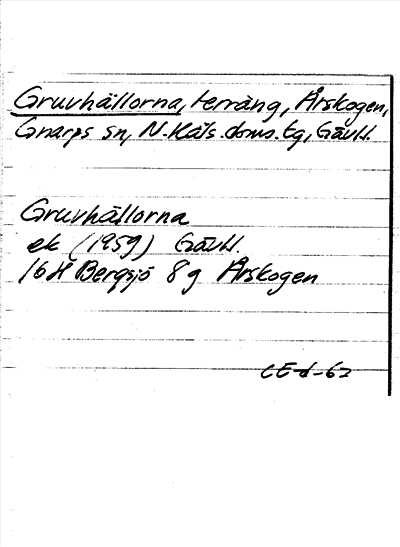 Gruvhällorna, terräng, Årskogen,
Gnarps sn, N. Häls. doms. tg, Gävl.
Gruvhällorna
ek (1959) Gävl.
16H Bergsjö 8g Årskogen
CE-d-62